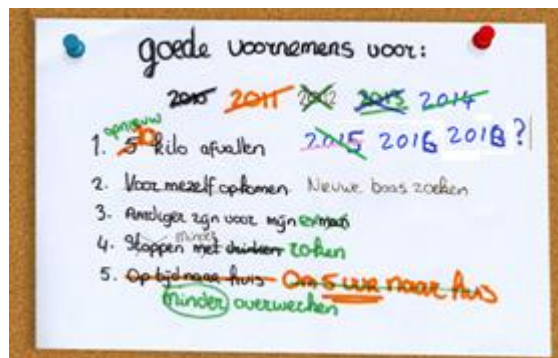 goede voornemens voor:
2010 2011 2012 2013 2014
2015 2016 2018?
opnieuw
1. 5 10 kilo afvallen
2. Voor mezelf opkomen Nieuwe baas zoeken
3. Aardiger zijn voor mijn exman
minder
4. Stoppen met drinken roken
5. Op tijd naar huis Om 5 uur naar huis
minder overwerken